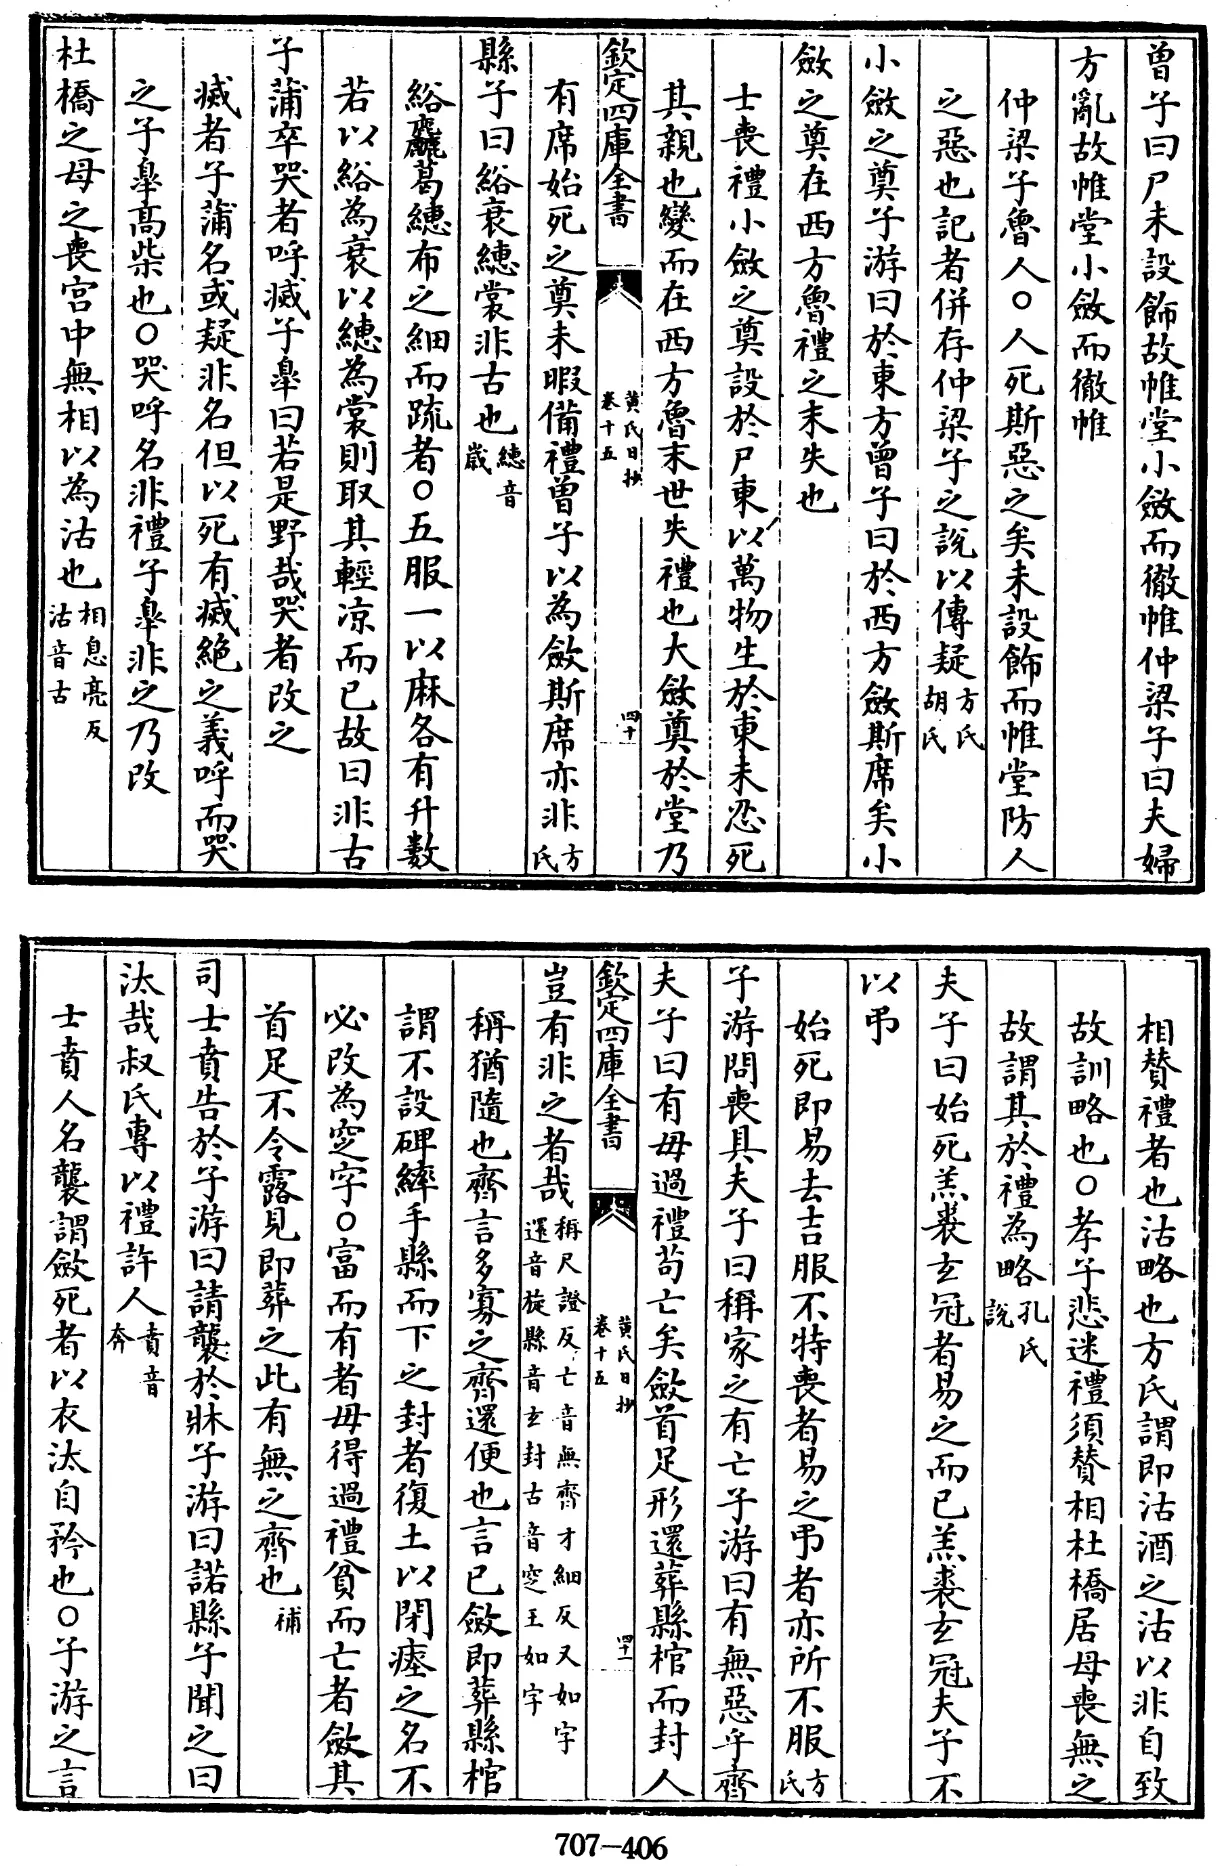 曾子曰尸未設飾故帷堂小斂而徹帷仲梁子曰夫婦
方亂故帷堂小斂而徹帷
仲梁子魯人○人死斯惡之矣未設飾而帷堂防人
之惡也記者併存仲梁子之說以傳疑方氏胡氏
小斂之奠子游曰於東方曾子曰於西方斂斯席矣小
斂之奠在西方魯禮之末失也
士喪禮小斂之奠設於尸東以萬物生於東未忍死
其親也變而在西方魯末世失禮也大斂奠於堂乃
欽定四庫全書
黃氏日抄
卷十五
四十
有席始死之奠未暇備禮曾子以為斂斯席亦非方氏
縣子曰綌衰繐裳非古也繐音歲
綌麤葛繐布之細而疏者○五服一以麻各有升數
若以綌為衰以繐為裳則取其輕凉而已故曰非古
子蒲卒哭者呼滅子臯曰若是野哉哭者改之
滅者子蒲名或疑非名但以死有滅絕之義呼而哭
之子臯高柴也○哭呼名非禮子臯非之乃改
杜橋之母之喪宫中無相以為沽也相息亮反沽音古
相賛禮者也沽略也方氏謂即沽酒之沽以非自致
故訓略也○孝子悲迷禮須賛相杜橋居母喪無之
故謂其於禮為略孔氏說
夫子曰始死羔裘玄冠者易之而已羔裘玄冠夫子不
以弔
始死即易去吉服不特喪者易之弔者亦所不服方氏
子游問喪具夫子曰稱家之有亡子游曰有無惡乎齊
夫子曰有毋過禮苟亡矣斂首足形還葬縣棺而封人
欽定四庫全書
黃氏日抄
卷十五
四十一
豈有非之者哉稱尺證反亡音無齊才細反又如字還音旋縣音玄封古音窆王如字
稱猶隨也齊言多寡之齊還便也言已斂即葬縣棺
謂不設碑繂手縣而下之封者復土以閉瘞之名不
必改為窆字○富而有者毋得過禮貧而亡者斂其
首足不令露見即葬之此有無之齊也補
司士賁告於子游曰請襲於牀子游曰諾縣子聞之曰
汰哉叔氏專以禮許人賁音奔
士賁人名襲謂斂死者以衣汰自矜也○子游之言
707-406